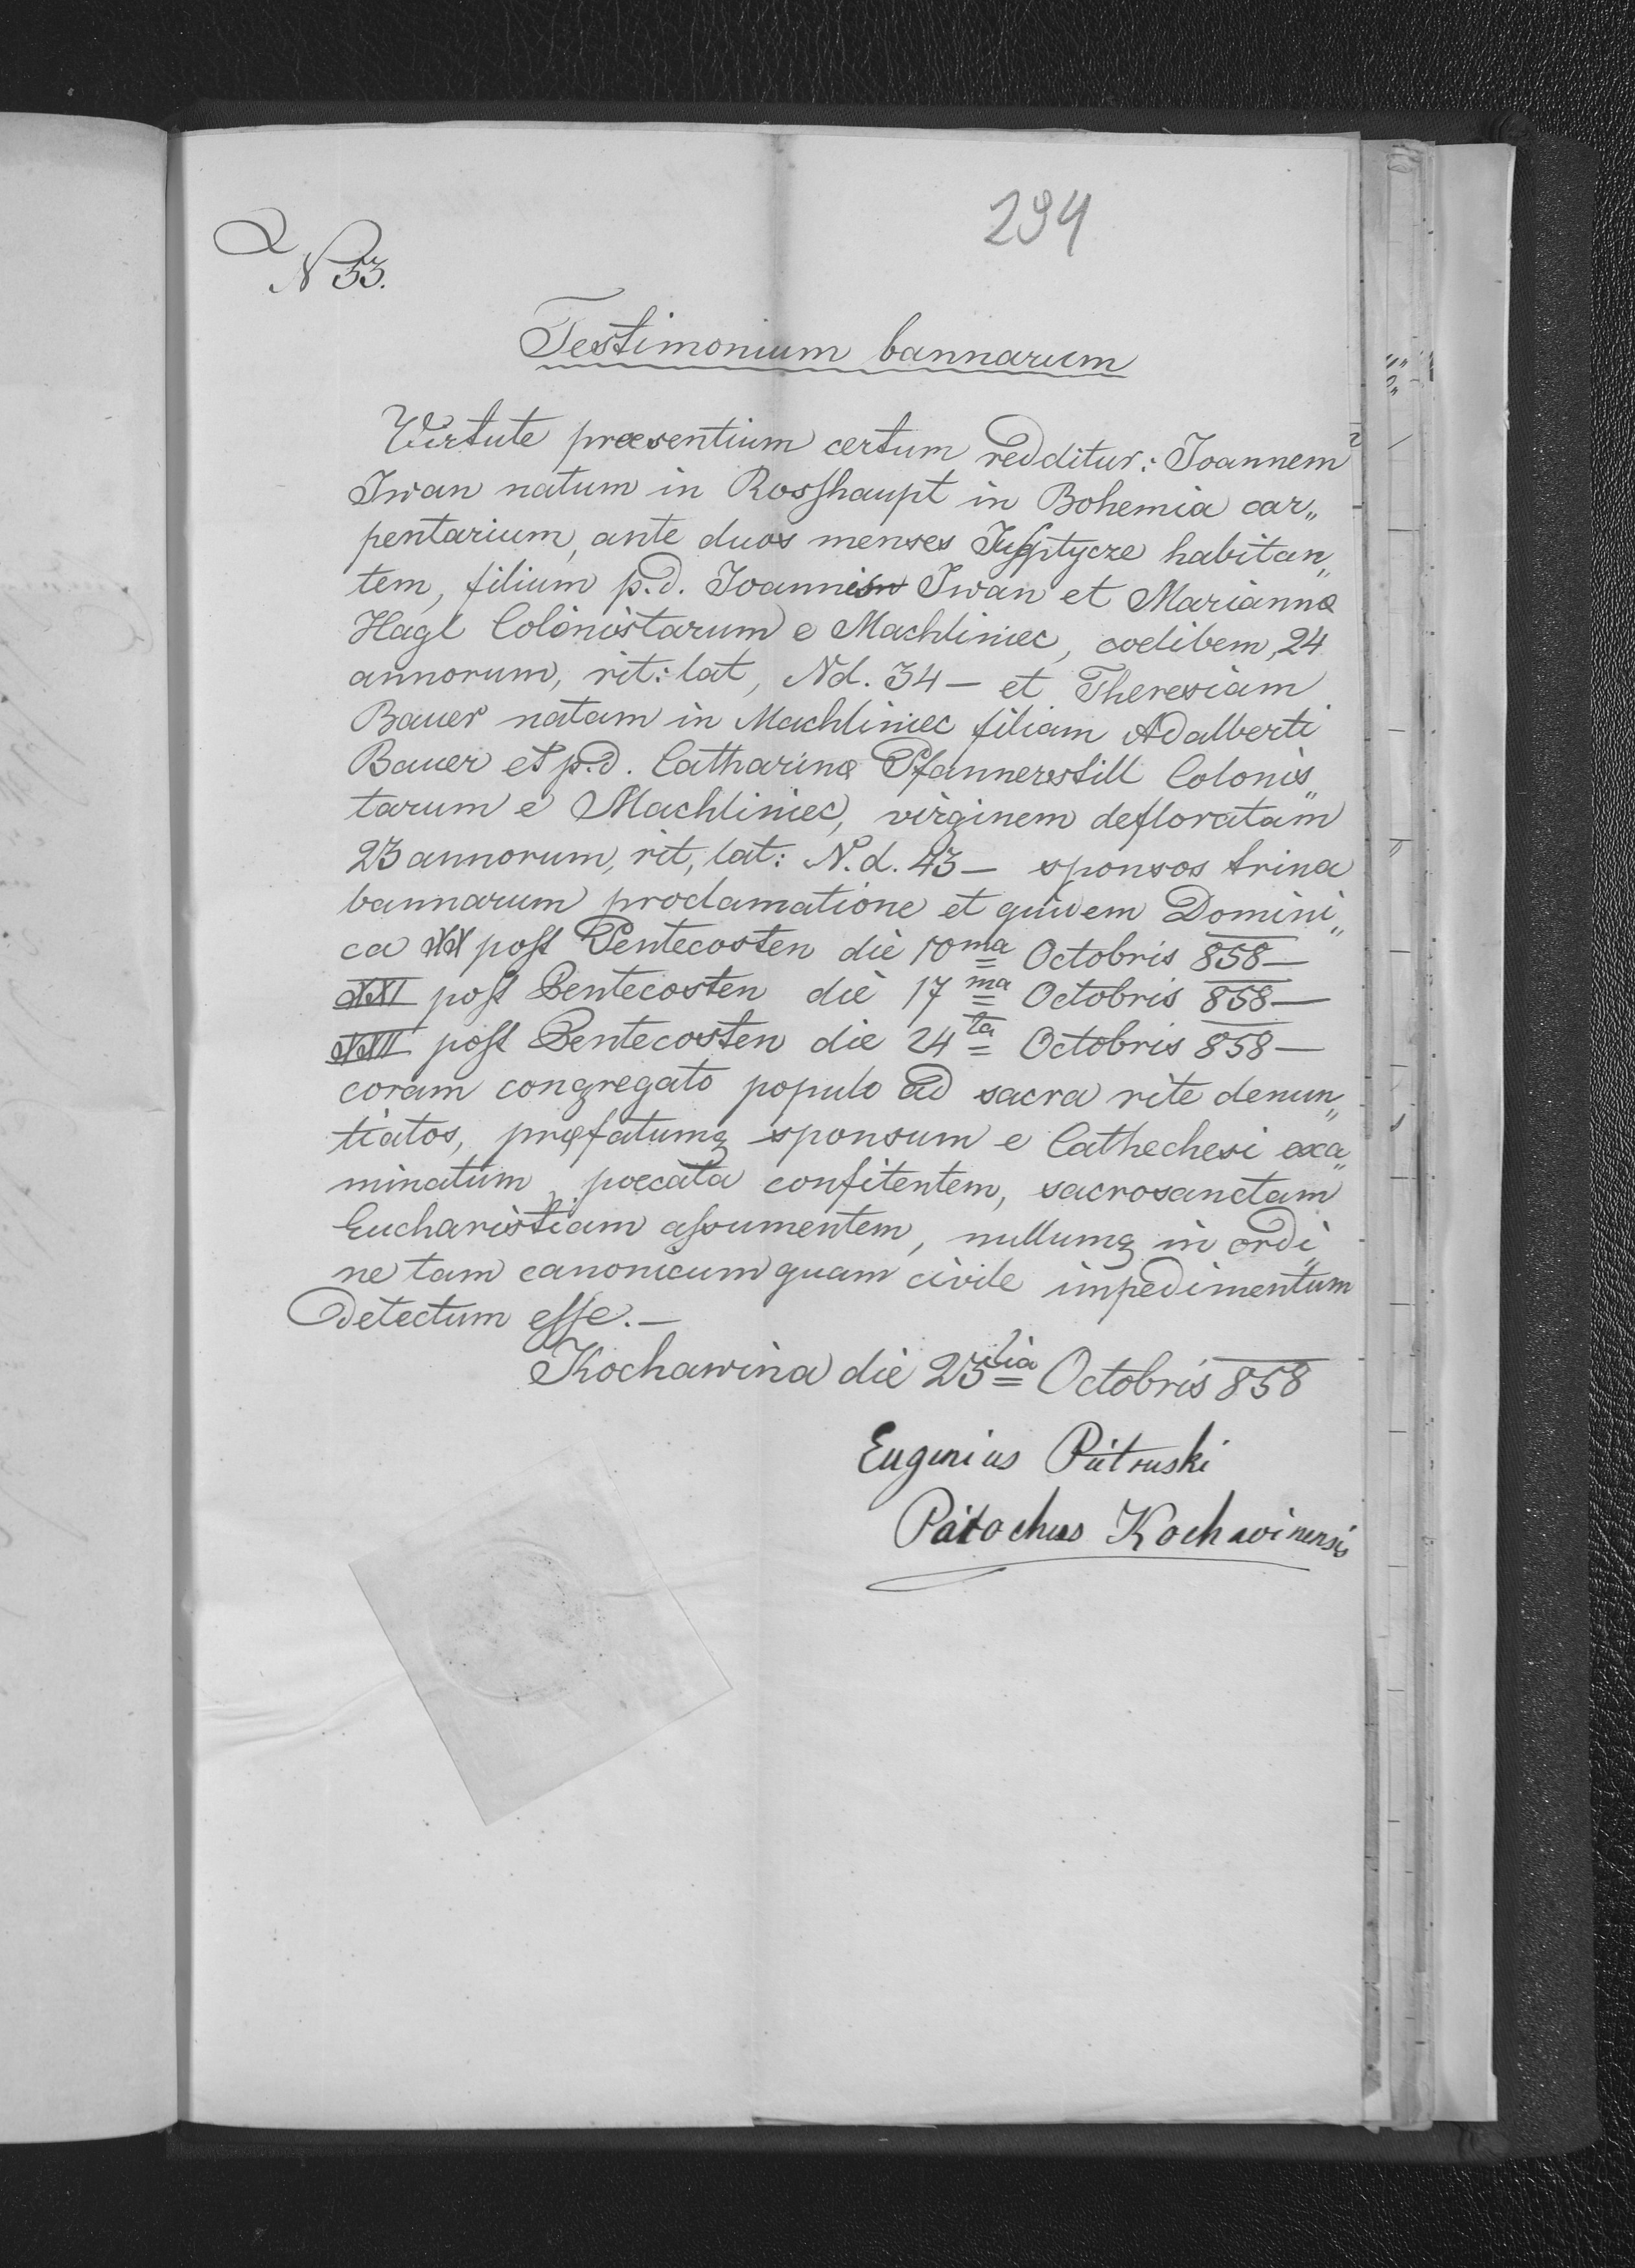 294
N 53.
Testimonium bannarum
Virtute præsentium certum redditur: Joannem
Iwan natum in Rosshaupt in Bohemia car„
pentarium, ante duos menses habitan„
tem, filium p.d. Joannis Iwan et Mariannæ
Hagl Colonistarum e Machliniec, coelibem, 24
annorum, rit: lat, Nd. 34 — et Theresiam
Bauer natam in Machliniec filiam Adalberti
Bauer et p.d. Catharinæ Pfannerstill Colonis„
tarum e Machliniec, virginem defloratam
23 annorum, rit, lat: N.d. 43 — sponsos trina
bannarum proclamatione et quidem Domini„
ca XX post Pentecosten die 10ma Octobris 858 —
XXI post Pentecosten die 17ma Octobris 858 —
XXII post Pentecosten die 24ta Octobris 858 —
coram congregato populo ad sacra rite denun„
tiatos, præfatumq sponsum e Cathechesi exa„
minatum, pecata confitentem, sacrosanctam
Eucharistiam assumentem, nullumq in ordi„
ne tam canonicum quam civile impedimentum
detectum esse. —
Kochawina die 25 Octobris 858
Eugenius Pietruski
Parochus Kochavinensis